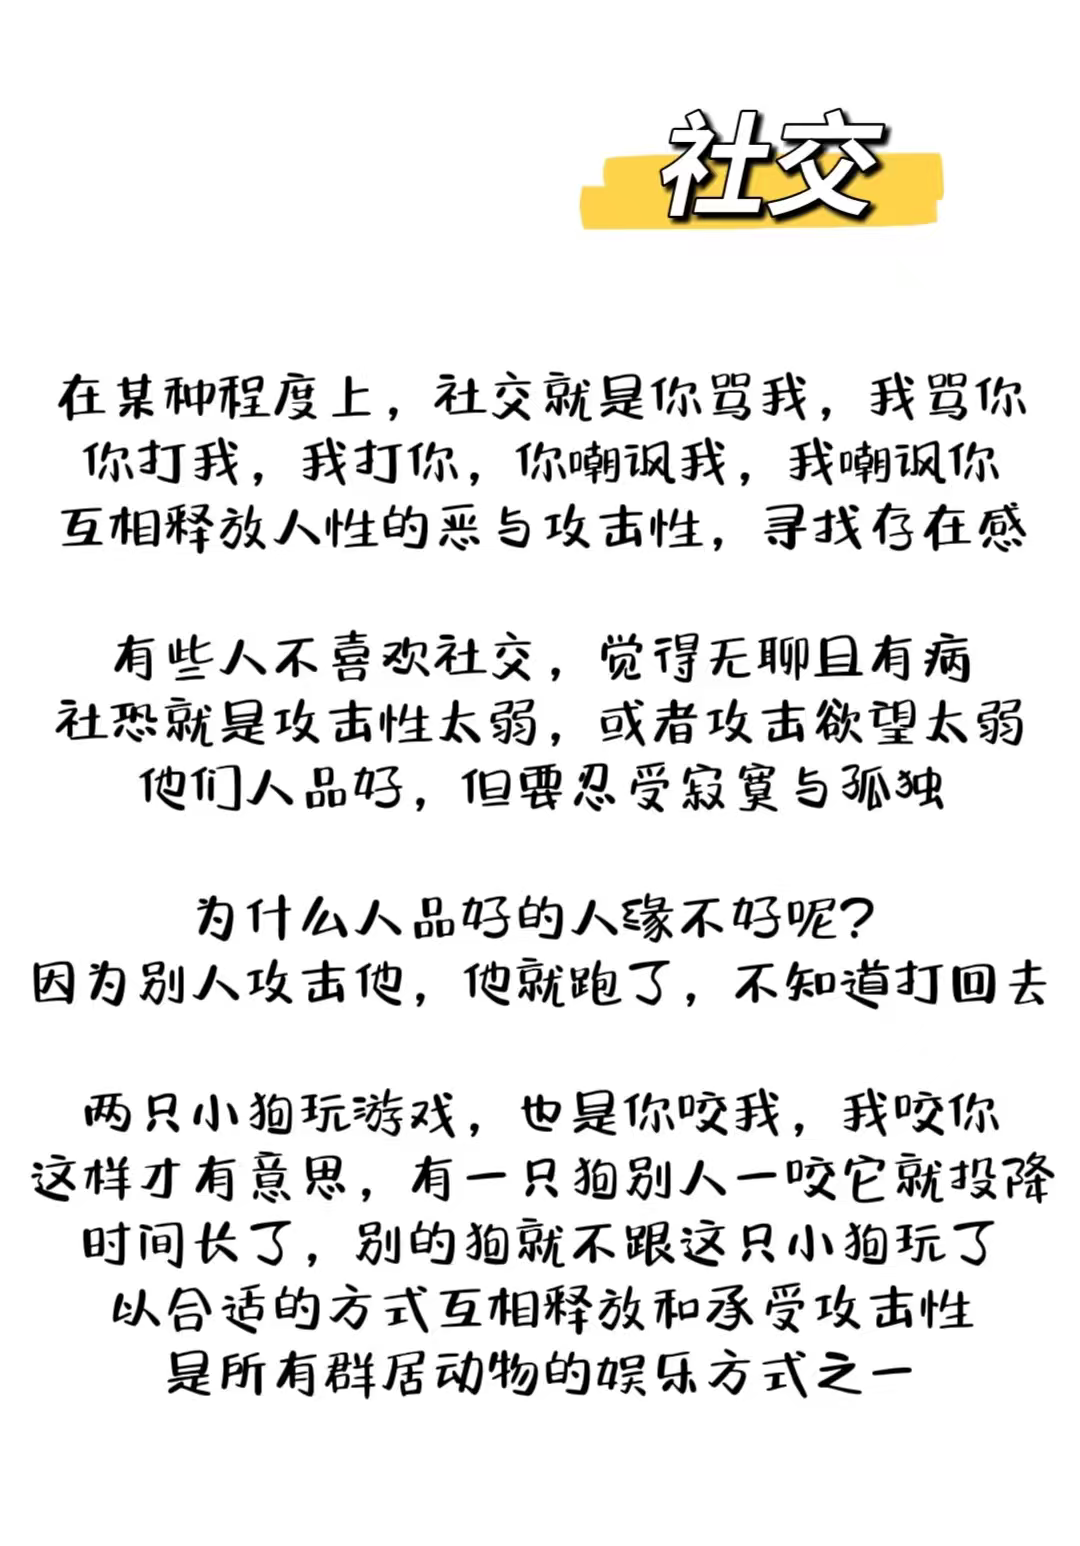 社交
在某种程度上，社交就是你骂我，我骂你
你打我，我打你，你嘲讽我，我嘲讽你
互相释放人性的恶与攻击性，寻找存在感
有些人不喜欢社交，觉得无聊且有病
社恐就是攻击性太弱，或者攻击欲望太弱
他们人品好，但要忍受寂寞与孤独
为什么人品好的人缘不好呢?
因为别人攻击他，他就跑了，不知道打回去
两只小狗玩游戏，也是你咬我，我咬你
这样才有意思，有一只狗别人一咬它就投降
时间长了，别的狗就不跟这只小狗玩了
以合适的方式互相释放和承受攻击性
是所有群居动物的娱乐方式之一